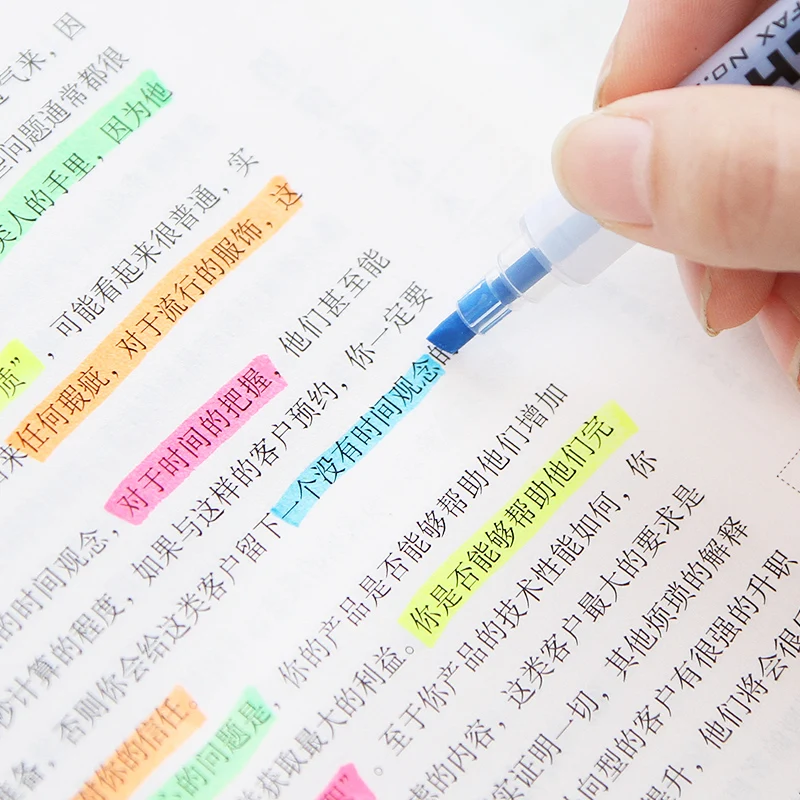 气来，因
些问题通常都很
类人的手里，因为他
质”，可能看起来很普通，实
来任何瑕疵，对于流行的服饰，这
对于时间的把握，他们甚至能
的时间观念，如果与这样的客户预约，你一定要
秒计算的程度，否则你会给这类客户留下一个没有时间观念的
准备，
对你的信任。
心的问题是，你的产品是否能够帮助他们增加
获取最大的利益。你是否能够帮助他们完
。至于你产品的技术性能如何，你
的内容，这类客户最大的要求是
实证明一切，其他烦琐的解释
向型的客户有很强的升职
提升，他们将会很
FAX NO.